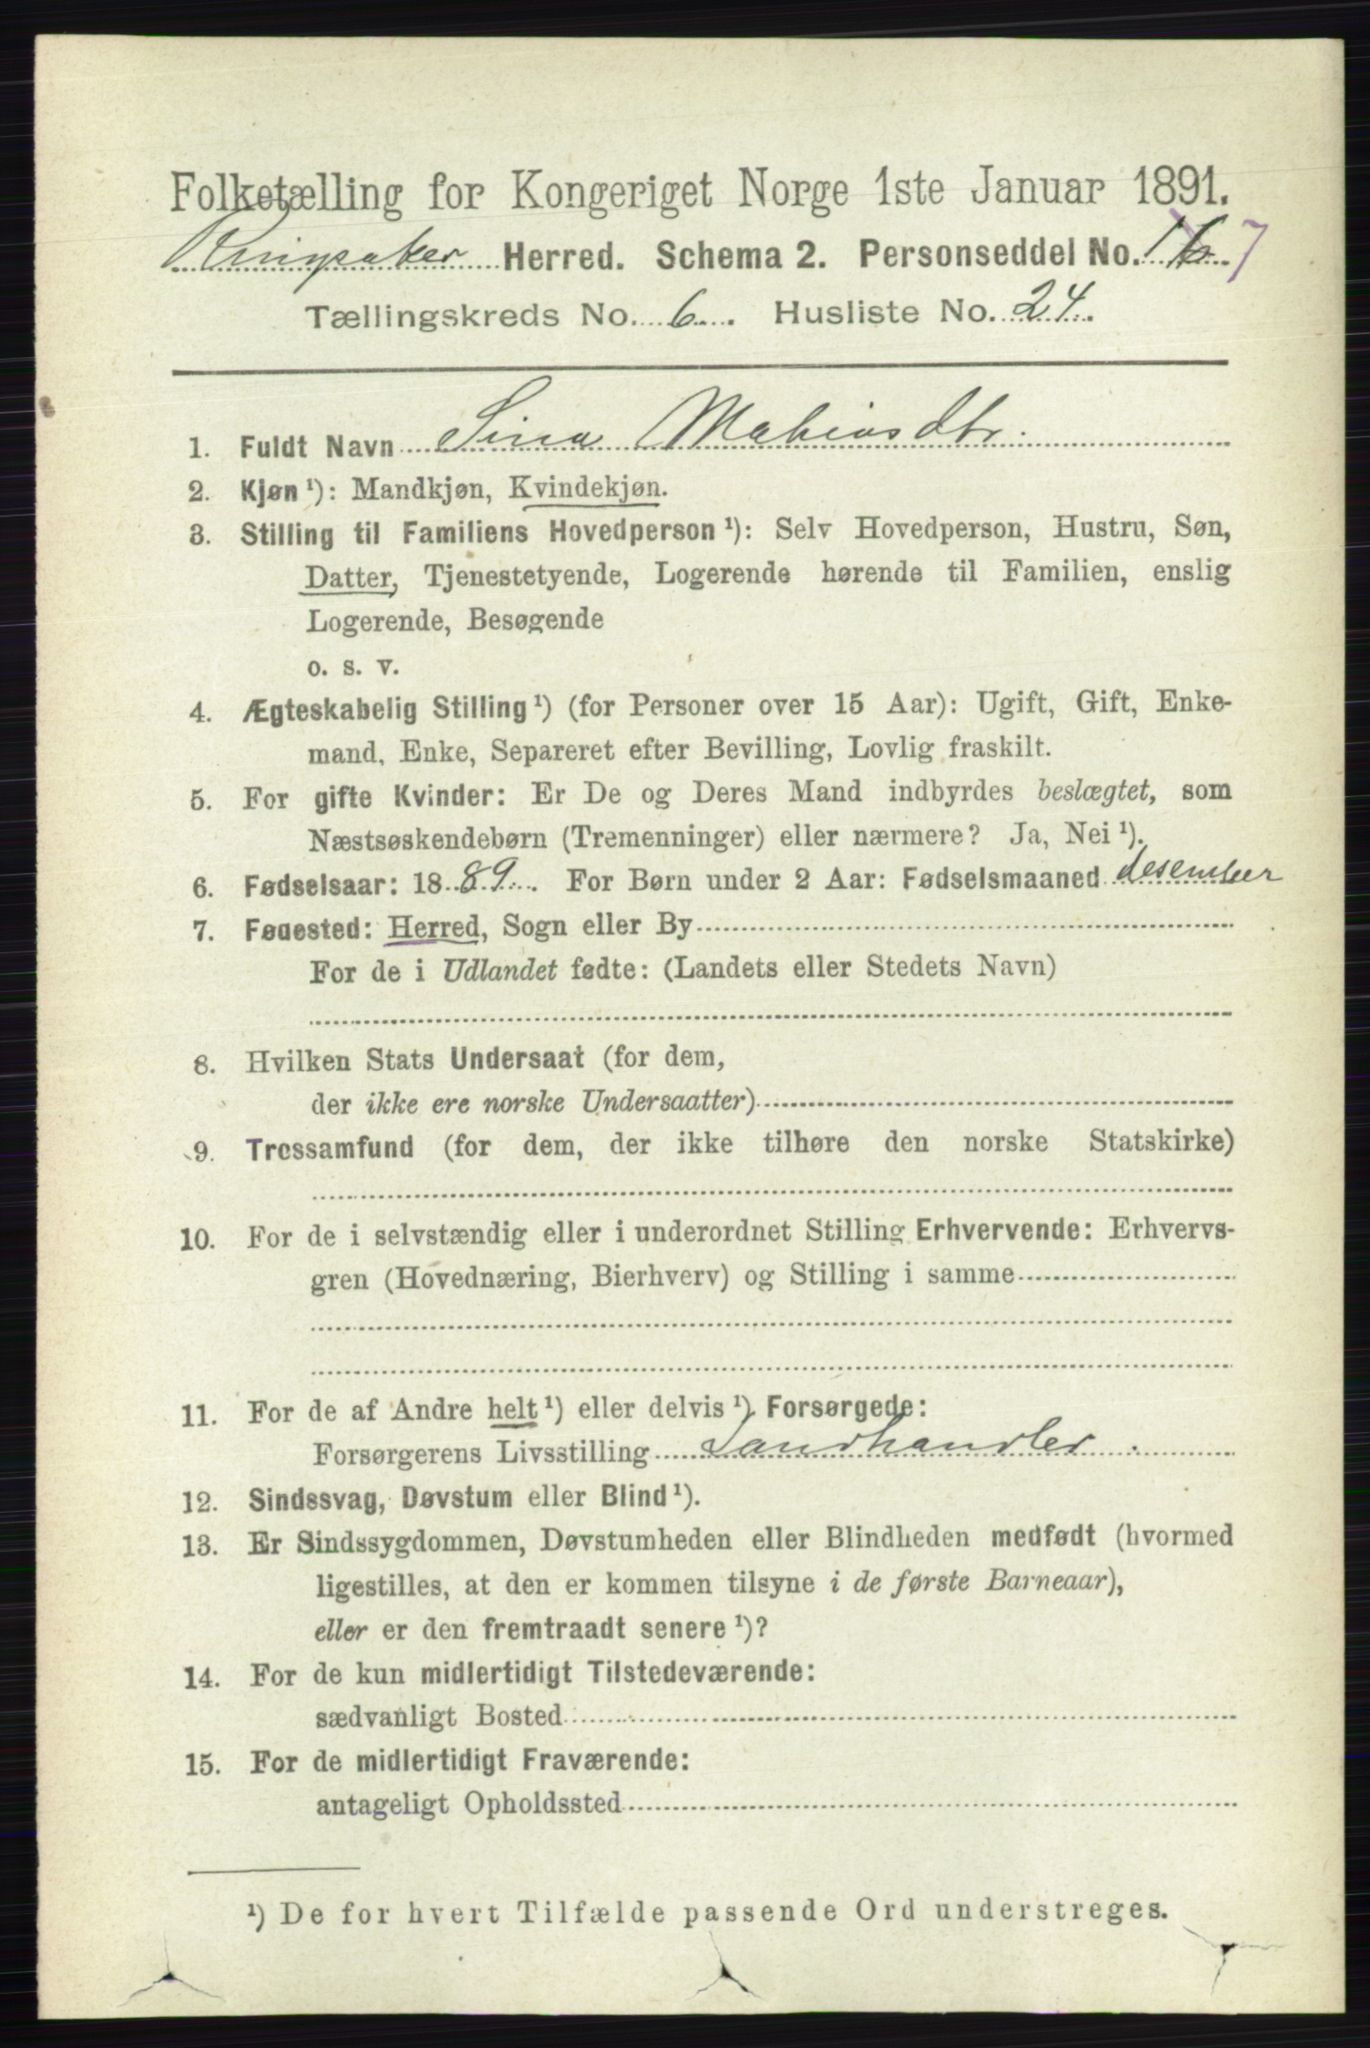 Folketælling for Kongeriget Norge 1ste Januar 1891.
Ringsaker Herred. Schema 2. Personseddel No. 16 7
Tællingskreds No. 6. Husliste No. 24.
1. Fuldt Navn Sina Mathiasdtr.
2. Kjøn ¹): Mandkjøn, Kvindekjøn.
3. Stilling til Familiens Hovedperson ¹): Selv Hovedperson, Hustru, Søn,
Datter, Tjenestetyende, Logerende hørende til Familien, enslig
Logerende, Besøgende
o. s. v.
4. Ægteskabelig Stilling ¹) (for Personer over 15 Aar): Ugift, Gift, Enke-
mand, Enke, Separeret efter Bevilling, Lovlig fraskilt.
5. For gifte Kvinder: Er De og Deres Mand indbyrdes beslægtet, som
Næstsøskendebørn (Tremenninger) eller nærmere? Ja, Nei ¹).
6. Fødselsaar: 1889. For Børn under 2 Aar: Fødselsmaaned desember
7. Fødested: Herred, Sogn eller By
For de i Udlandet fødte: (Landets eller Stedets Navn)
8. Hvilken Stats Undersaat (for dem,
der ikke ere norske Undersaatter)
9. Trossamfund (for dem, der ikke tilhøre den norske Statskirke)
10. For de i selvstændig eller i underordnet Stilling Erhvervende: Erhvervs-
gren (Hovednæring, Bierhverv) og Stilling i samme
11. For de af Andre helt ¹) eller delvis ¹) Forsørgede:
Forsørgerens Livsstilling Landhandler.
12. Sindssvag, Døvstum eller Blind ¹).
13. Er Sindssygdommen, Døvstumheden eller Blindheden medfødt (hvormed
ligestilles, at den er kommen tilsyne i de første Barneaar),
eller er den fremtraadt senere ¹)?
14. For de kun midlertidigt Tilstedeværende:
sædvanligt Bosted
15. For de midlertidigt Fraværende:
antageligt Opholdssted
¹) De for hvert Tilfælde passende Ord understreges.